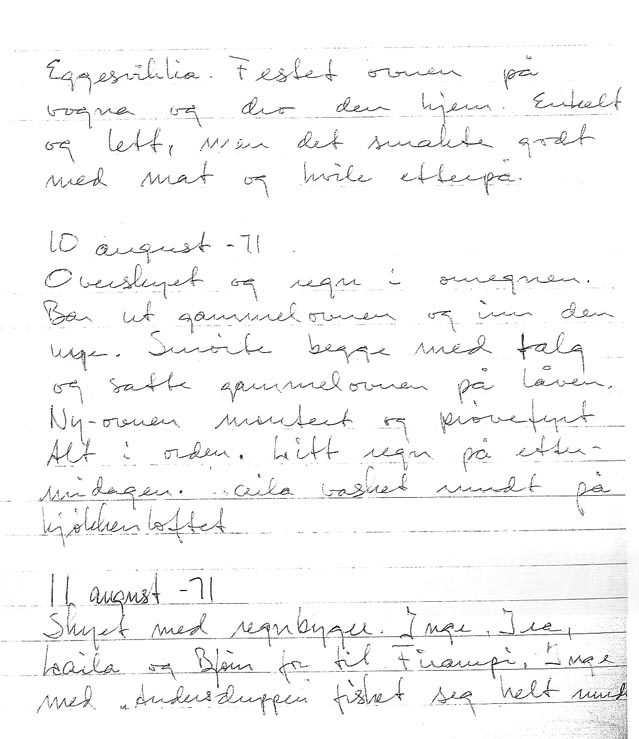 Eggesviklia. Festet ovnen på
vogna og dro den hjem. Enkelt
og lett, men det smakte godt
med mat og hvile etterpå.
10 august -71
Overskyet og regn i omegnen.
Bar ut gammelovnen og inn den
nye. Smörte begge med talg
og satte gammelovnen på låven.
Ny-ovnen montert og prövefyrt
Alt i orden. Litt regn på etter-
middagen. Laila vasket rundt på
kjökkenloftet
11 august -71
Skyet med regnbyger. Inge,
Laila og Björn for til Inge
med "Andersduppen" fisket seg helt rundt